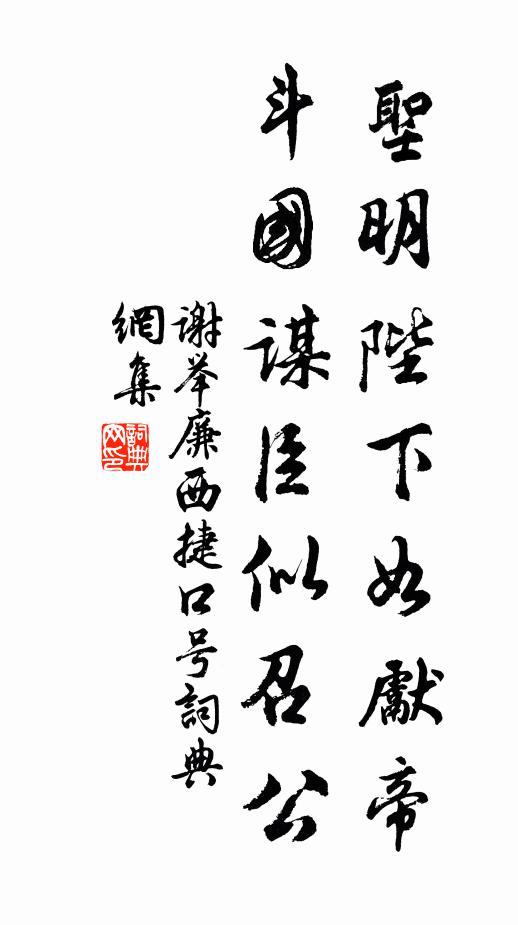 聖明陛下如獻帝
斗國謀臣似召公
谢举廉西捷口号詞典
網集
詞典網印